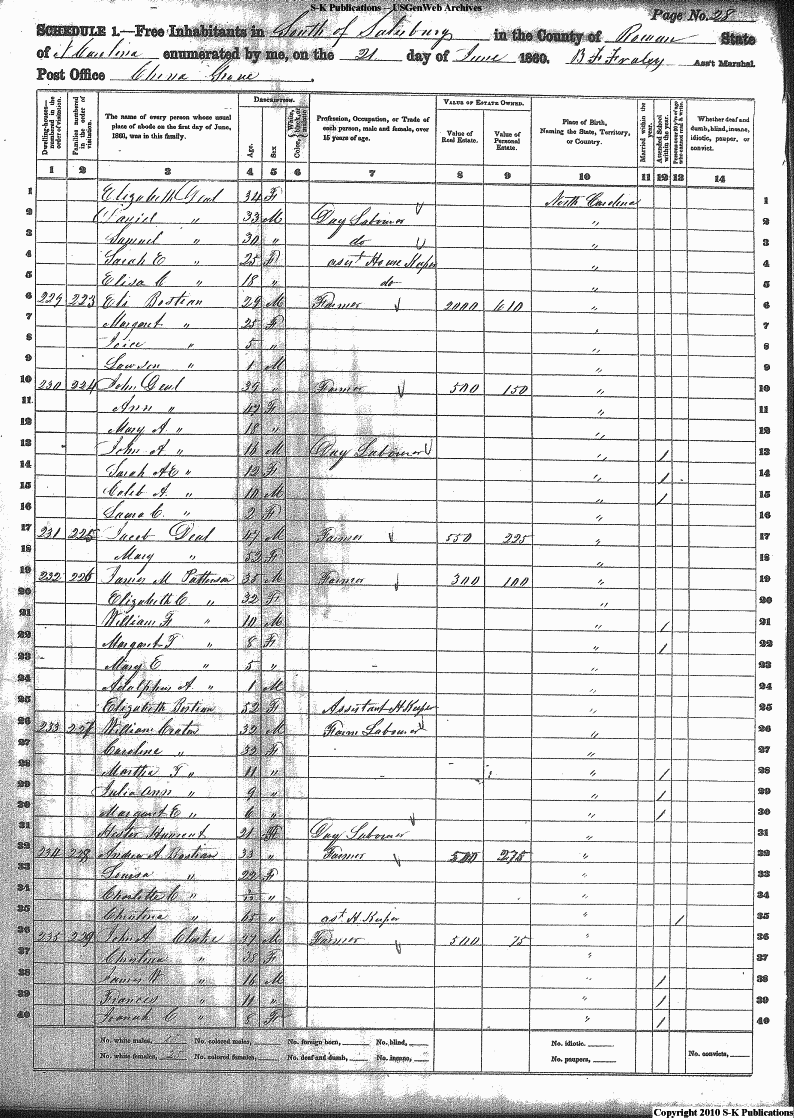 S-K Publications – USGenWeb Archives
Page No. 28
SCHEDULE 1.—Free Inhabitants in South of Salisbury in the County of Rowan State
of N Carolina enumerated by me, on the 21 day of June 1860. B F Fraley Ass't Marshal.
Post Office China Grove
DESCRIPTION. VALUE OF ESTATE OWNED.
Dwelling-houses—numbered in the order of visitation.
Families numbered in the order of visitation.
The name of every person whose usual place of abode on the first day of June, 1860, was in this family.
Age.
Sex
Color, White, black, or mulatto
Profession, Occupation, or Trade of each person, male and female, over 15 years of age.
Value of Real Estate.
Value of Personal Estate.
Place of Birth, Naming the State, Territory, or Country.
Married within the year.
Attended School within the year.
Persons over 20 y'rs of age who cannot read & write.
Whether deaf and dumb, blind, insane, idiotic, pauper, or convict.
1 2 3 4 5 6 7 8 9 10 11 12 13 14
1 Elizabeth Deal 34 F North Carolina 1
2 Daniel " 33 M Day Labourer " 2
3 Samuel " 30 " do " 3
4 Sarah E " 25 F asst House Keeper " 4
5 Elisa C " 18 " do " 5
6 229 223 Eli Bostian 29 M Farmer 2000 610 " 6
7 Margaret " 25 F " 7
8 " 5 " " 8
9 Lawson " 1 M " 9
10 230 224 John Deal 39 " Farmer 500 150 " 10
11 Ann " 47 F " 11
12 Mary A " 18 " " 12
13 John A " 16 M Day Labourer " / 13
14 Sarah AE " 12 F " / 14
15 Caleb A. " 10 M " / 15
16 Laura C. " 2 F " 16
17 231 225 Jacob Deal 47 M Farmer 550 225 " 17
18 Mary " 52 F " 18
19 232 226 James M Patterson 35 M Farmer 300 100 " 19
20 Elizabeth C " 32 F " 20
21 William F " 10 M " / 21
22 Margaret T " 8 F " / 22
23 Mary E " 5 " " 23
24 Adolphus A " 1 M " 24
25 Elizabeth Bostian 52 F Assistant H Keeper " 25
26 233 227 William Craton 32 M Farm Labourer " 26
27 Caroline " 32 F " 27
28 Martha T " 11 " " / 28
29 Julia Ann " 9 " " / 29
30 Margaret E " 6 " " / 30
31 21 M Day Labourer " 31
32 234 228 Andrew A Bostian 33 " Farmer 500 275 " 32
33 Louisa " 22 F " 33
34 Charlotte C " " " 34
35 Christina " 65 " ast H Keeper " / 35
36 235 229 John A Clarke 37 M Farmer 500 75 " 36
37 Christina " 38 F " 37
38 James W " 16 M " / 38
39 Frances " 11 " " / 39
40 C " 8 F " / 40
No. white males, No. colored males, No. foreign born, No. blind, No. idiotic,
No. white females, No. colored females, No. deaf and dumb, No. insane, No. paupers, No. convicts,
Copyright 2010 S-K Publications